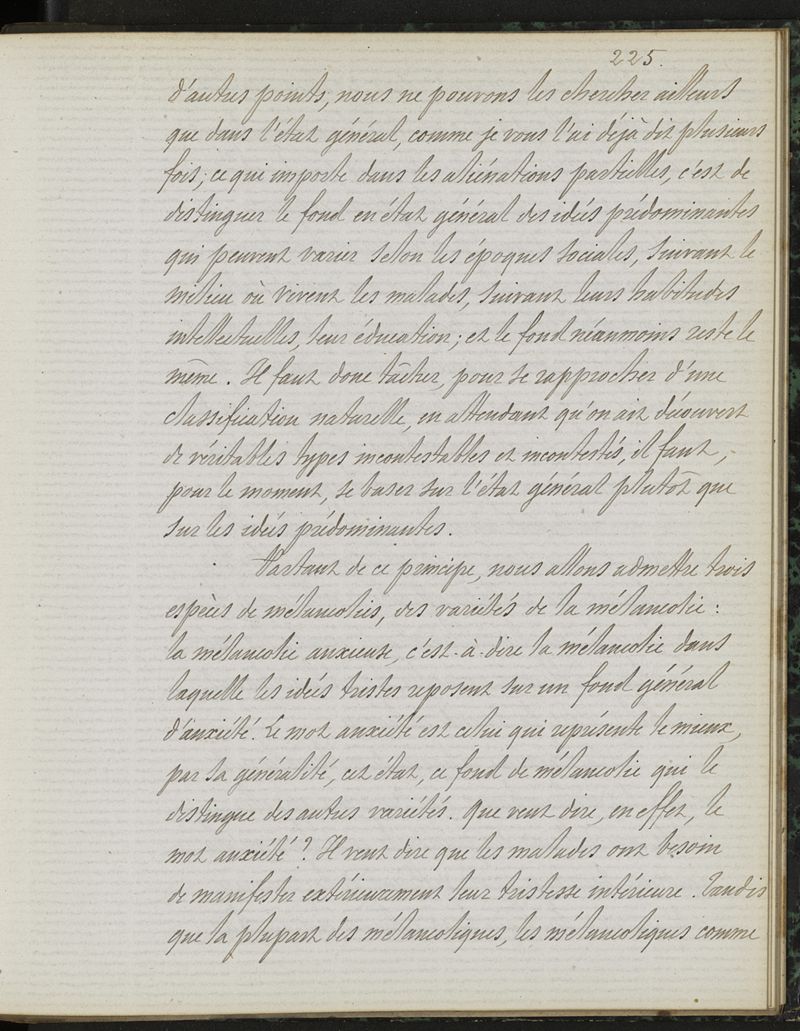 225.
d'autres points, nous ne pouvons les chercher ailleurs
que dans l'état général, comme je vous l'ai déjà dit plusieurs
fois; ce qui importe dans les aliénations partielles, c'est de
distinguer le fond en état général des idées prédominantes
qui peuvent varier selon les époques sociales, suivant le
milieu où vivent les malades, suivant leurs habitudes
intellectuelles, leur éducation; et le fond néanmoins reste le
même. Il faut donc tâcher, pour se rapprocher d'une
classification naturelle, en attendant qu'on ait découvert
de véritables types incontestables et incontestés, il faut,
pour le moment, se baser sur l'état général plutôt que
sur les idées prédominantes.
Partant de ce principe, nous allons admettre trois
espèces de mélancolies, des variétés de la mélancolie :
la mélancolie anxieuse, c'est-à-dire la mélancolie dans
laquelle les idées tristes reposent sur un fond général
d'anxiété. Le mot anxiété est celui qui représente le mieux,
par sa généralité, cet état, ce fond de mélancolie qui le
distingue des autres variétés. Que veut dire, en effet, le
mot anxiété ? Il veut dire que les malades ont besoin
de manifester extérieurement leur tristesse intérieure. Tandis
que la plupart des mélancoliques, les mélancoliques comme